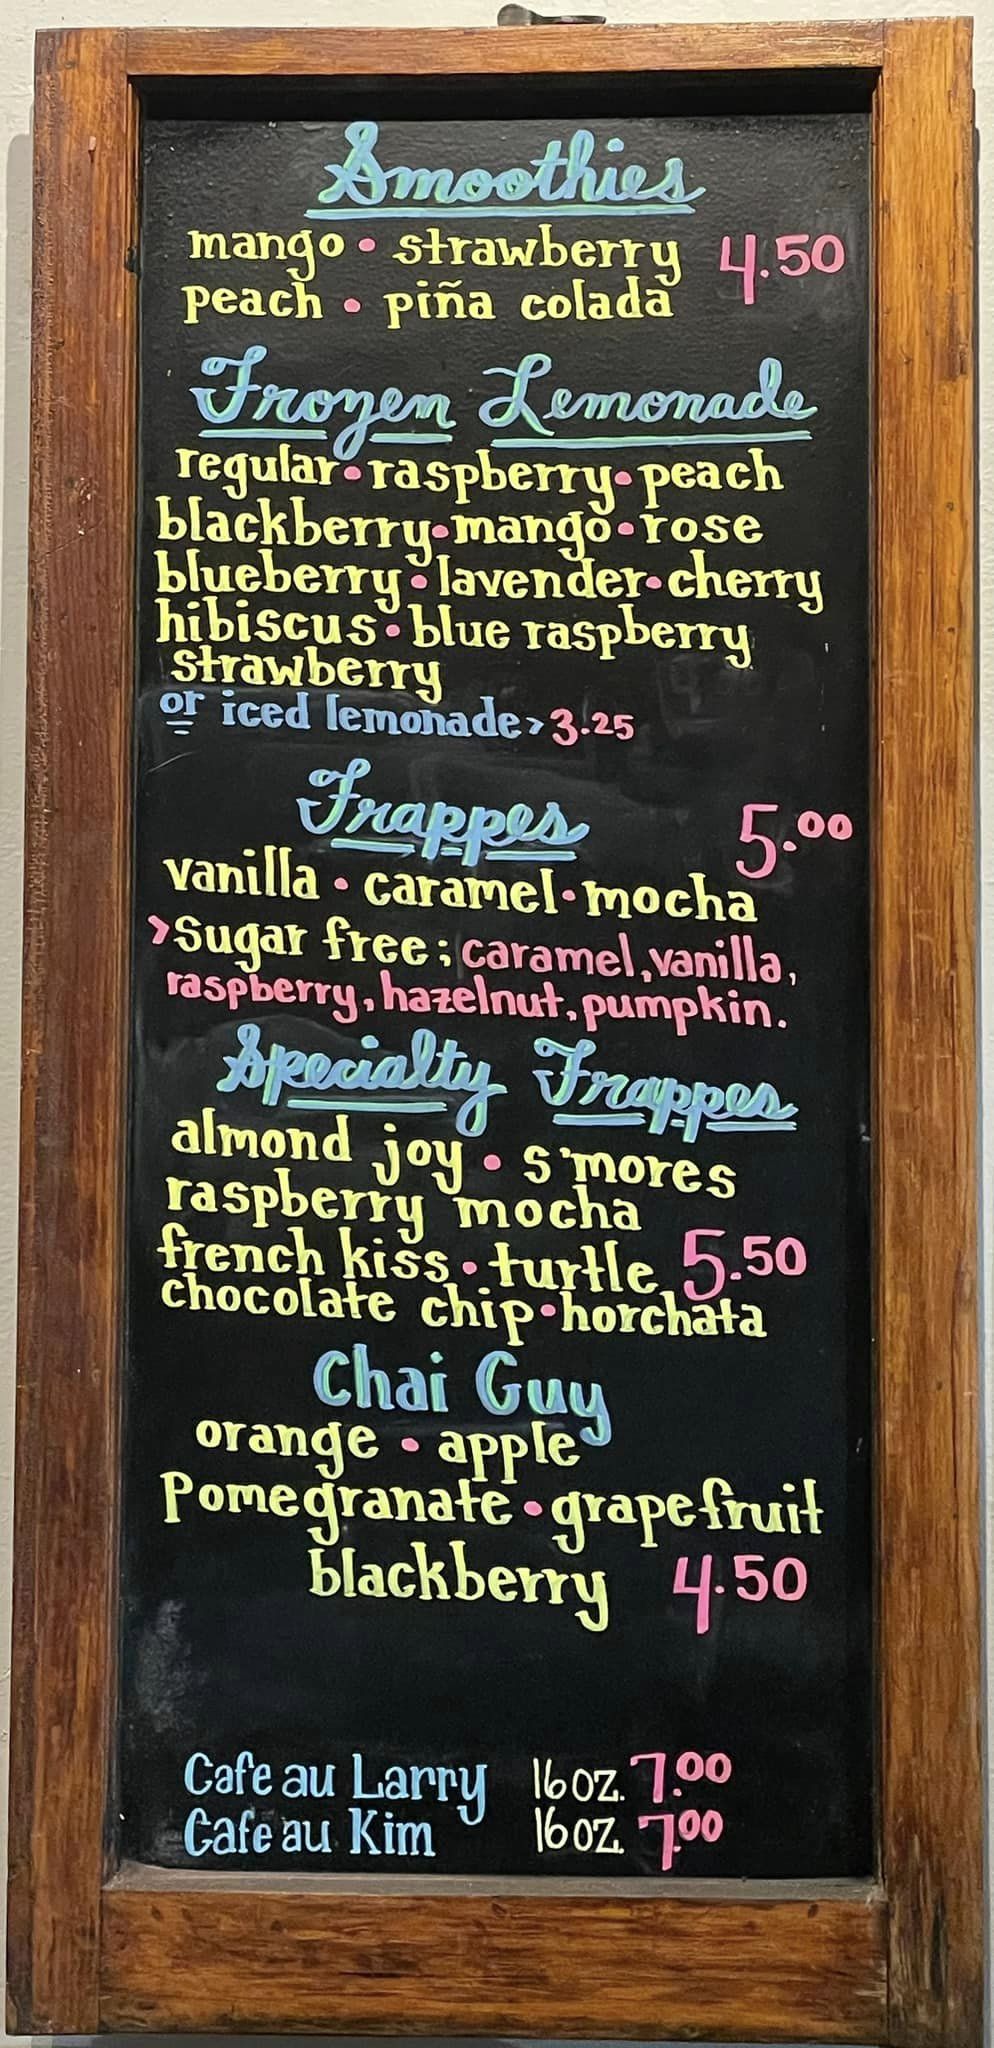 Smoothies
mango • strawberry 4.50
peach • piña colada
Frozen Lemonade
regular • raspberry • peach
blackberry • mango • rose
blueberry • lavender • cherry
hibiscus • blue raspberry
strawberry
or iced lemonade > 3.25
Frappes 5.00
vanilla • caramel • mocha
>Sugar free; caramel, vanilla,
raspberry, hazelnut, pumpkin.
Specialty Frappes
almond joy • s'mores
raspberry mocha
french kiss • turtle 5.50
chocolate chip • horchata
Chai Guy
orange • apple
Pomegranate • grapefruit
blackberry 4.50
Cafe au Larry 16 oz. 7.00
Cafe au Kim 16 oz. 7.00